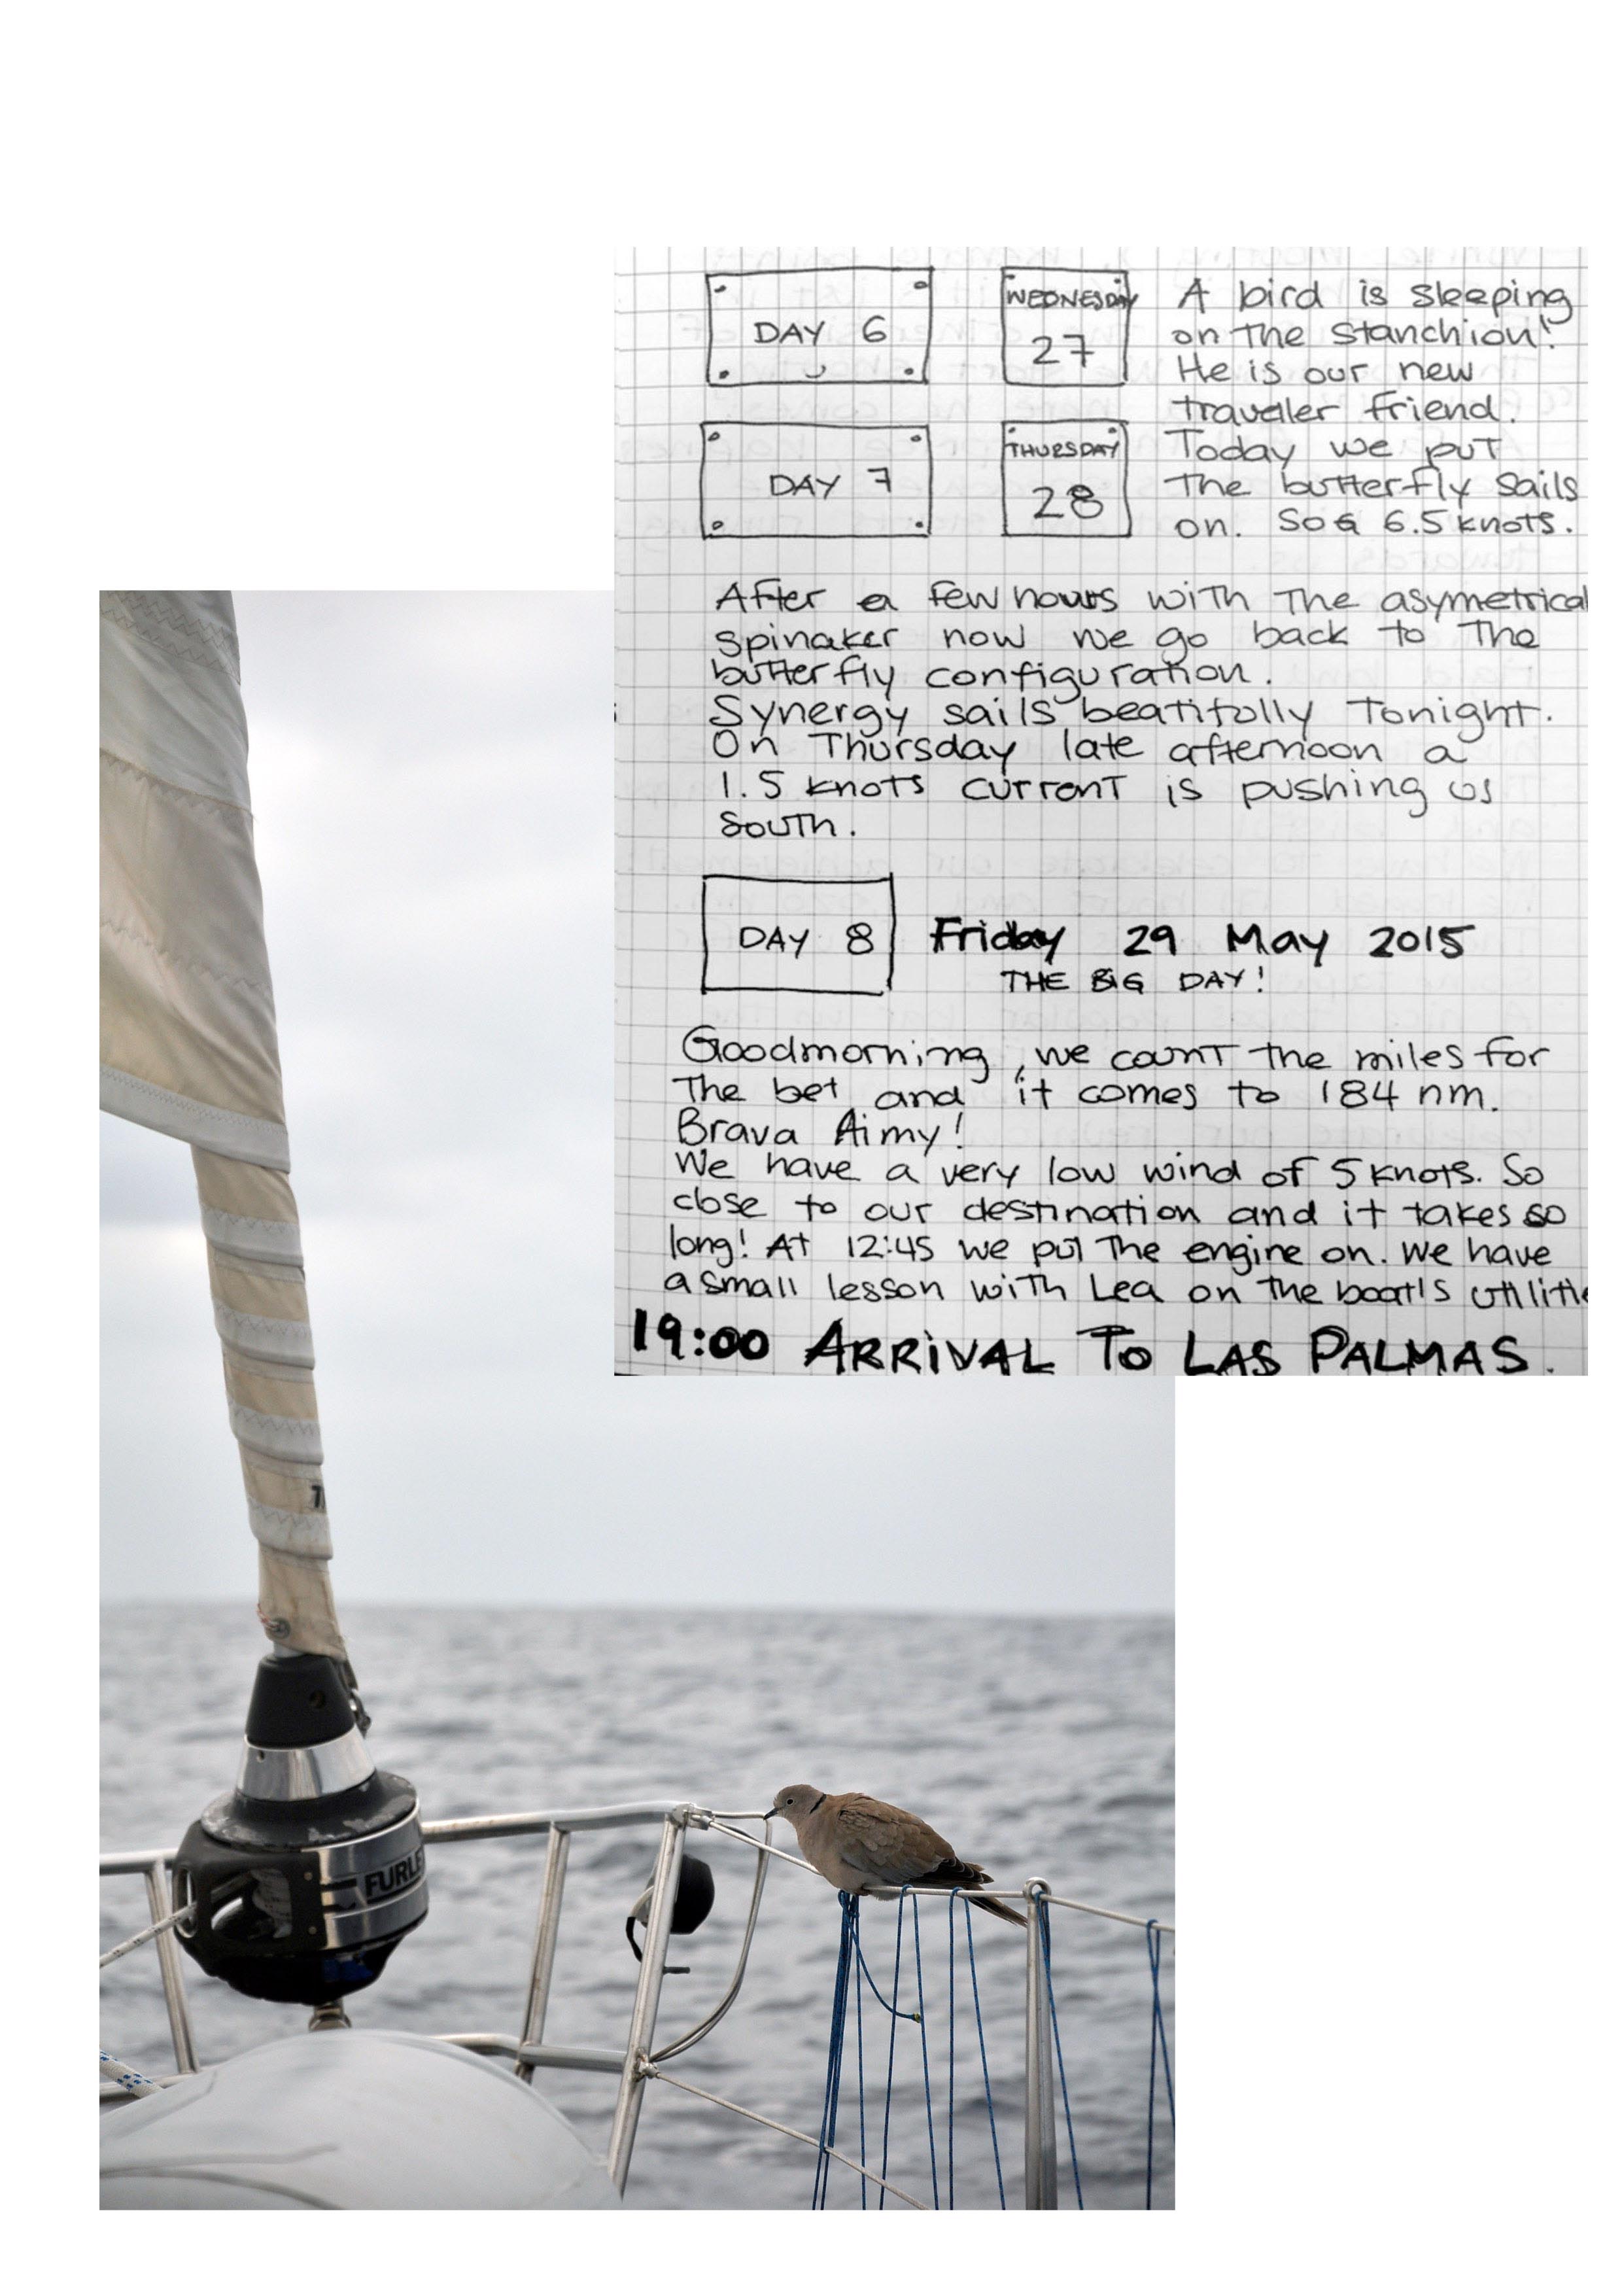 DAY 6
WEDNESDAY
27
A bird is sleeping
on the stanchion!
He is our new
traveller friend.
DAY 7
THURSDAY
28
Today we put
the butterfly sails
on. SOG 6.5 knots.
After a few hours with the asymetrical
spinaker now we go back to the
butterfly configuration.
Synergy sails beatifully tonight.
On Thursday late afternoon a
1.5 knots current is pushing us
south.
DAY 8
Friday 29 May 2015
THE BIG DAY!
Goodmorning, we count the miles for
the bet and it comes to 184 nm.
Brava Aimy!
We have a very low wind of 5 knots. So
close to our destination and it takes so
long! At 12:45 we put the engine on. We have
a small lesson with Lea on the boat's
19:00 ARRIVAL TO LAS PALMAS.
FURLE